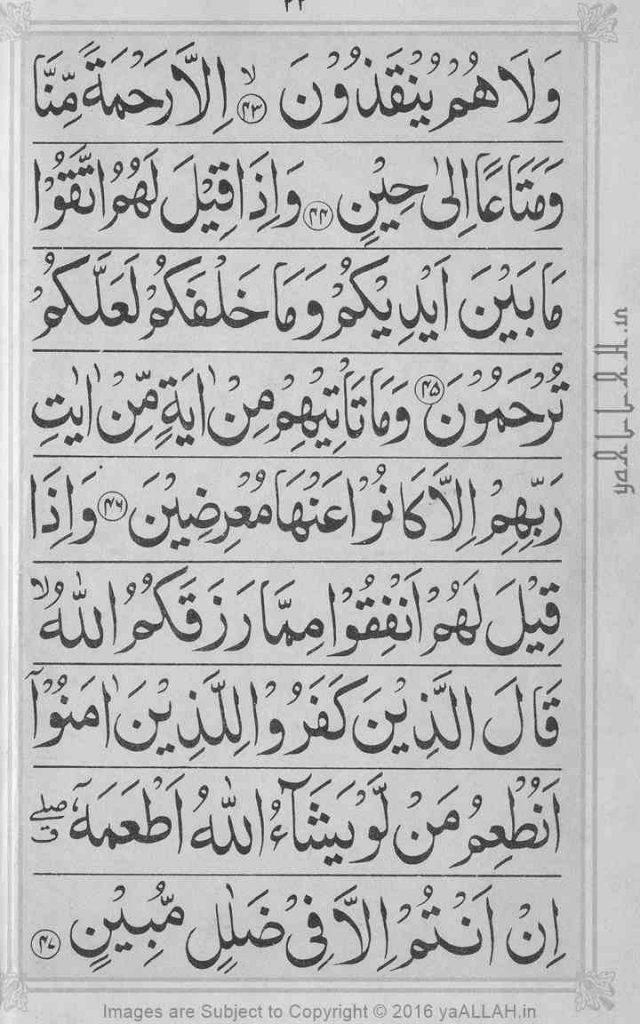 وَلَا هُمْ يُنْقَذُوْنَ ﴿۴۳﴾ۙ اِلَّا رَحْمَةً مِّنَّا
وَمَتَاعًا اِلٰى حِيْنٍ ﴿۴۴﴾ وَاِذَا قِيْلَ لَهُمُ اتَّقُوْا
مَا بَيْنَ اَيْدِيْكُمْ وَمَا خَلْفَكُمْ لَعَلَّكُمْ
تُرْحَمُوْنَ ﴿۴۵﴾ وَمَا تَاْتِيْهِمْ مِنْ اٰيَةٍ مِّنْ اٰيٰتِ
رَبِّهِمْ اِلَّا كَانُوْا عَنْهَا مُعْرِضِيْنَ ﴿۴۶﴾ وَاِذَا
قِيْلَ لَهُمْ اَنْفِقُوْا مِمَّا رَزَقَكُمُ اللّٰهُ ۙ
قَالَ الَّذِيْنَ كَفَرُوْا لِلَّذِيْنَ اٰمَنُوْٓا
اَنُطْعِمُ مَنْ لَّوْ يَشَآءُ اللّٰهُ اَطْعَمَهٗٓ ۖ ق
اِنْ اَنْتُمْ اِلَّا فِيْ ضَلٰلٍ مُّبِيْنٍ ﴿۴۷﴾
yaALLAH.in
Images are Subject to Copyright © 2016 yaALLAH.in